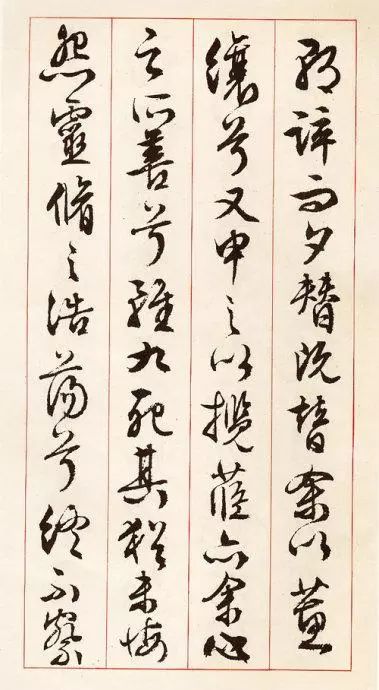 朝谇而夕替既替余以蕙
纕兮又申之以揽茝亦余心
之所善兮雖九死其猶未悔
怨靈脩之浩蕩兮終不察